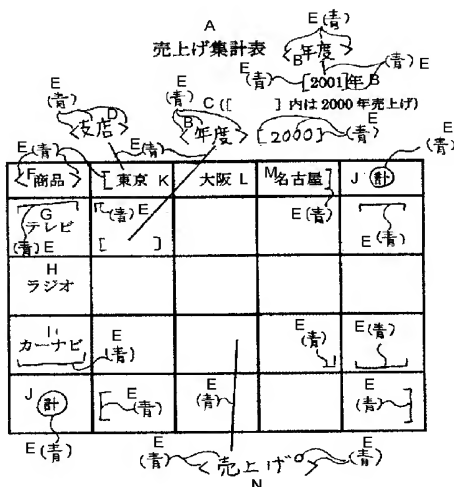 A
売上げ集計表
E (青)
B〈年度〉
E (青) [2001]年B (青) E
E (青) C ([ ] 内は 2000 年売上げ)
E (青) D 〈支店〉
B 〈年度〉 [2000] (青) E
E (青)
E (青) E (青)
〈F商品〉 [東京 K 大阪 L M名古屋] J 計
G テレビ (青) E [ (青) E E (青) E (青)
[ ]
H
ラジオ
I カーナビ E (青) E (青) E (青)
J 計 [E (青) E (青) E (青)]
E (青)
E (青) 〈売上げ〉 E (青)
N